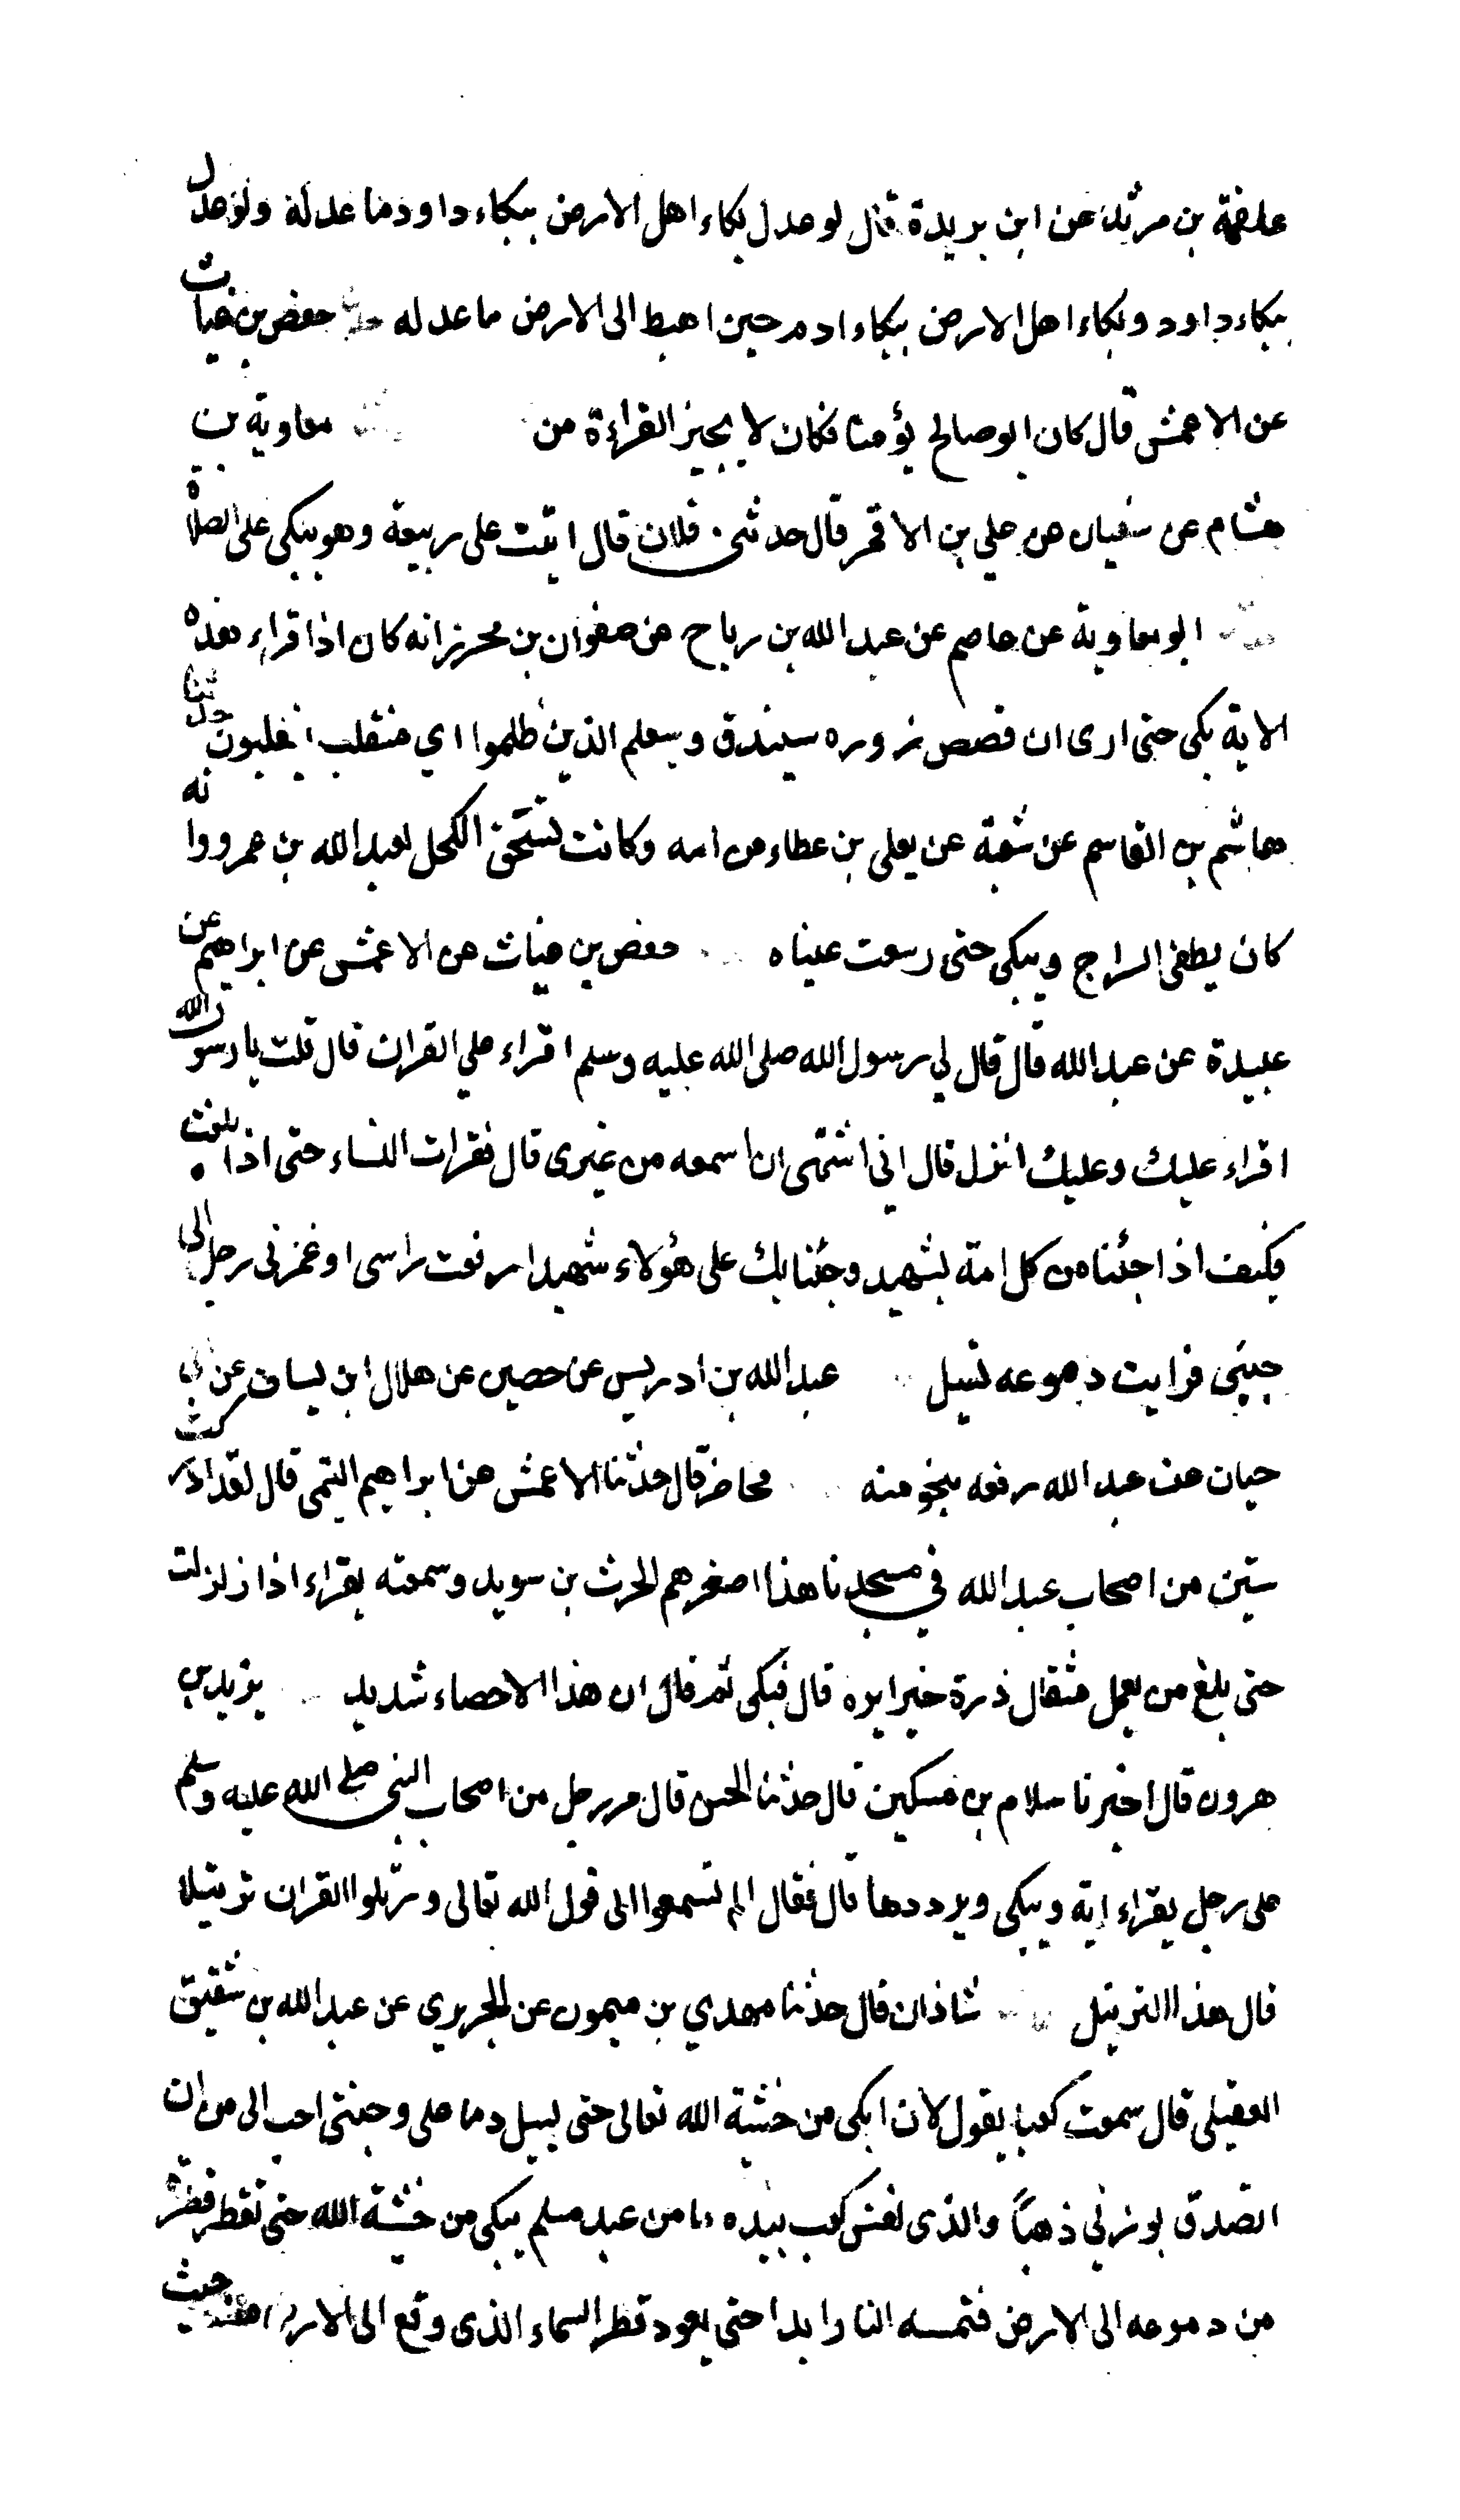 علقمة بن مرثد عن ابن بريدة قال لو عدل بكاء اهل الارض ببكاء داود ما عدله ولو عدل
بكاء داود وبكاء اهل الارض ببكاء ادم حين اهبط الى الارض ما عدله حفص بن غياث
عن الاعمش قال كان ابو صالح يؤمنا فكان لا يجيز القراءة من معاوية بن
هشام عن سفيان عن علي بن الاقمر قال حدثني فلان قال اتيت على ربيعة وهو يبكى على الصلاة
ابو معاوية عن عاصم عن عبد الله بن رباح عن صفوان بن محرز انه كان اذا قراء هذه
الاية بكى حتى ارى ان قصص زوره سيندق وسيعلم الذين ظلموا اي منقلب ينقلبون حدثنا
هاشم بن القاسم عن شعبة عن يعلى بن عطاء عن امه وكانت تسحق الكحل لعبد الله بن عمرو وانه
كان يطفى السراج ويبكى حتى رسعت عيناه حفص بن غياث عن الاعمش عن ابراهيم عن
عبيدة عن عبد الله قال قال لي رسول الله صلى الله عليه وسلم اقراء علي القران قال قلت يا رسول الله
اقراء عليك وعليك انزل قال اني اشتهى ان اسمعه من غيرى قال فقرات النساء حتى اذا بلغت
فكيف اذا جئنا من كل امة بشهيد وجئنا بك على هؤلاء شهيدا رفعت راسى او غمزنى رجل الى
جنبى فرايت دموعه تسيل عبد الله بن ادريس عن حصين عن هلال ابن يساف عن ابي
حيان عن عبد الله رفعه بنحو منه محاضر قال حدثنا الاعمش عن ابراهيم التيمى قال لقد ادركت
ستين من اصحاب عبد الله في مسجدنا هذا اصغرهم الحرث بن سويد وسمعته يقراء اذا زلزلت
حتى بلغ من يعمل مثقال ذرة خيرا يره قال فبكى ثم قال ان هذا الاحصاء شديد يزيد بن
هرون قال اخبرنا سلام بن مسكين قال حدثنا الحسن قال مر رجل من اصحاب النبي صلى الله عليه وسلم
على رجل يقراء اية ويبكى ويرددها قال فقال الم تسمعوا الى قول الله تعالى ورتلوا القران ترتيلا
قال هذا الترتيل شاذان قال حدثنا مهدي بن ميمون عن الجريري عن عبد الله بن شقيق
العقيلى قال سمعت كعبا يقول لان ابكى من خشية الله تعالى حتى يسيل دما على وجنتى احب الى من ان
اتصدق بوزني ذهبًا والذى نفس كعب بيده ما من عبد مسلم يبكى من خشية الله حتى تقطر قطرة
من دموعه الى الارض فتمسه النار ابدا حتى يعود قطر السماء الذى وقع الى الارض من حيث